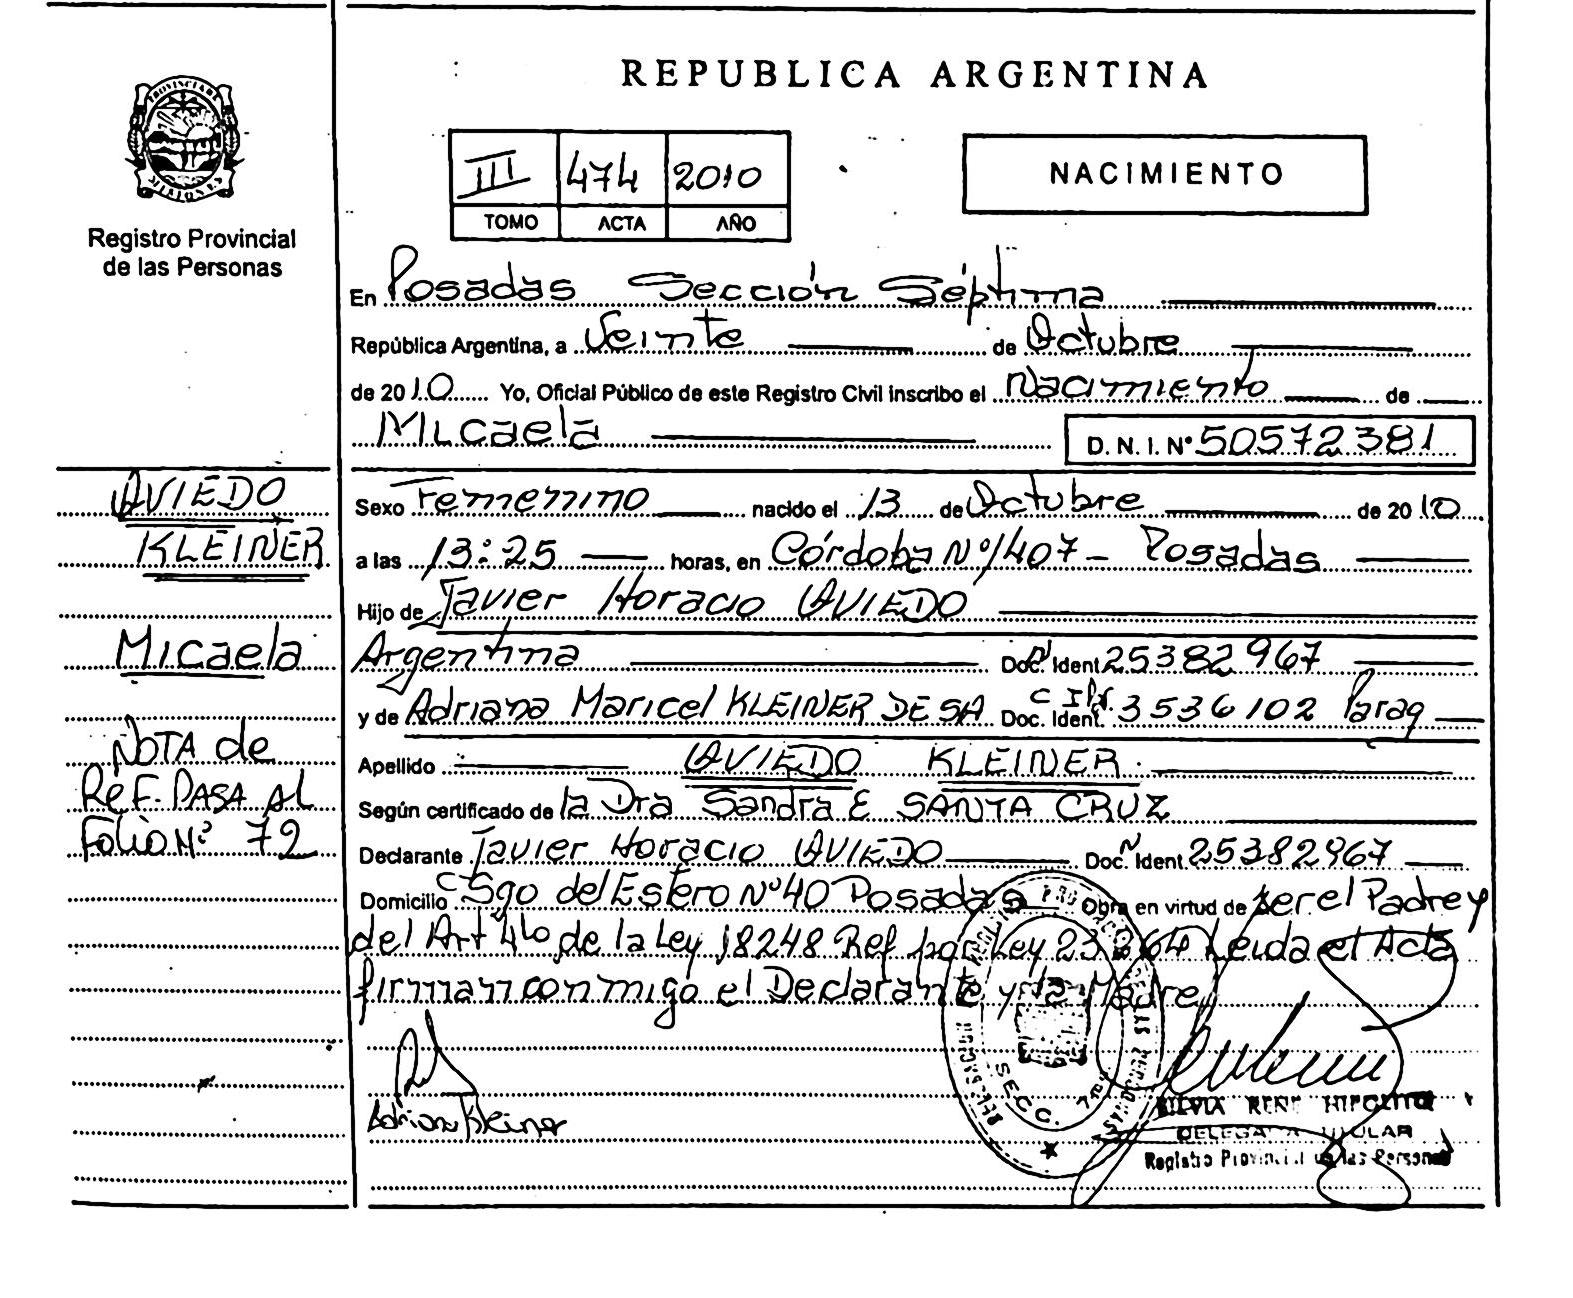 REPUBLICA ARGENTINA
PROVINCIA DE
MISIONES
Registro Provincial
de las Personas
III 474 2010
TOMO ACTA AÑO
NACIMIENTO
En Posadas Sección Séptima
República Argentina, a Veinte de Octubre
de 2010 Yo, Oficial Público de este Registro Civil inscribo el Nacimiento de
Micaela D. N. I. N° 50572381
AVIEDO
KLEINER
Micaela
NOTA de
REF. PASA Al
Folio Nº 72
Sexo Femenino nacido el 13 de Octubre de 2010
a las 13:25 horas, en Córdoba Nº 1407 - Posadas
Hijo de Javier Horacio AVIEDO
Argentina Doc. N Ident. 25382967
y de Adriana Maricel KLEINER DE SA Doc. Ident. C I Pr. 3536102 Parag
Apellido AVIEDO KLEINER.
Según certificado de la Dra Sandra E SANTA CRUZ
Declarante Javier Horacio AVIEDO Doc. N Ident. 25382967
Domicilio C Sgo del Estero Nº 40 Posadas Obra en virtud de ser el Padre y
del Art 4to de la Ley 18248 Ref por Ley 23264 Leida el Acta
firman conmigo el Declarante y la Madre
Adriana Kleiner
SECC. 7ma
SILVIA RENE HIPOLITO
DELEGADA TITULAR
Registro Provincial de las Personas